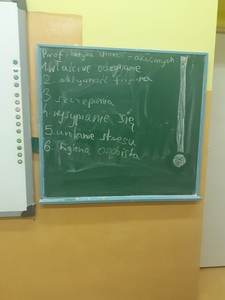 Profilaktyka chorób zakaźnych
1. Właściwe odżywianie
2. aktywność fizyczna
3. szczepienia
4. wysypianie się
5. unikanie stresu
6. higiena osobista